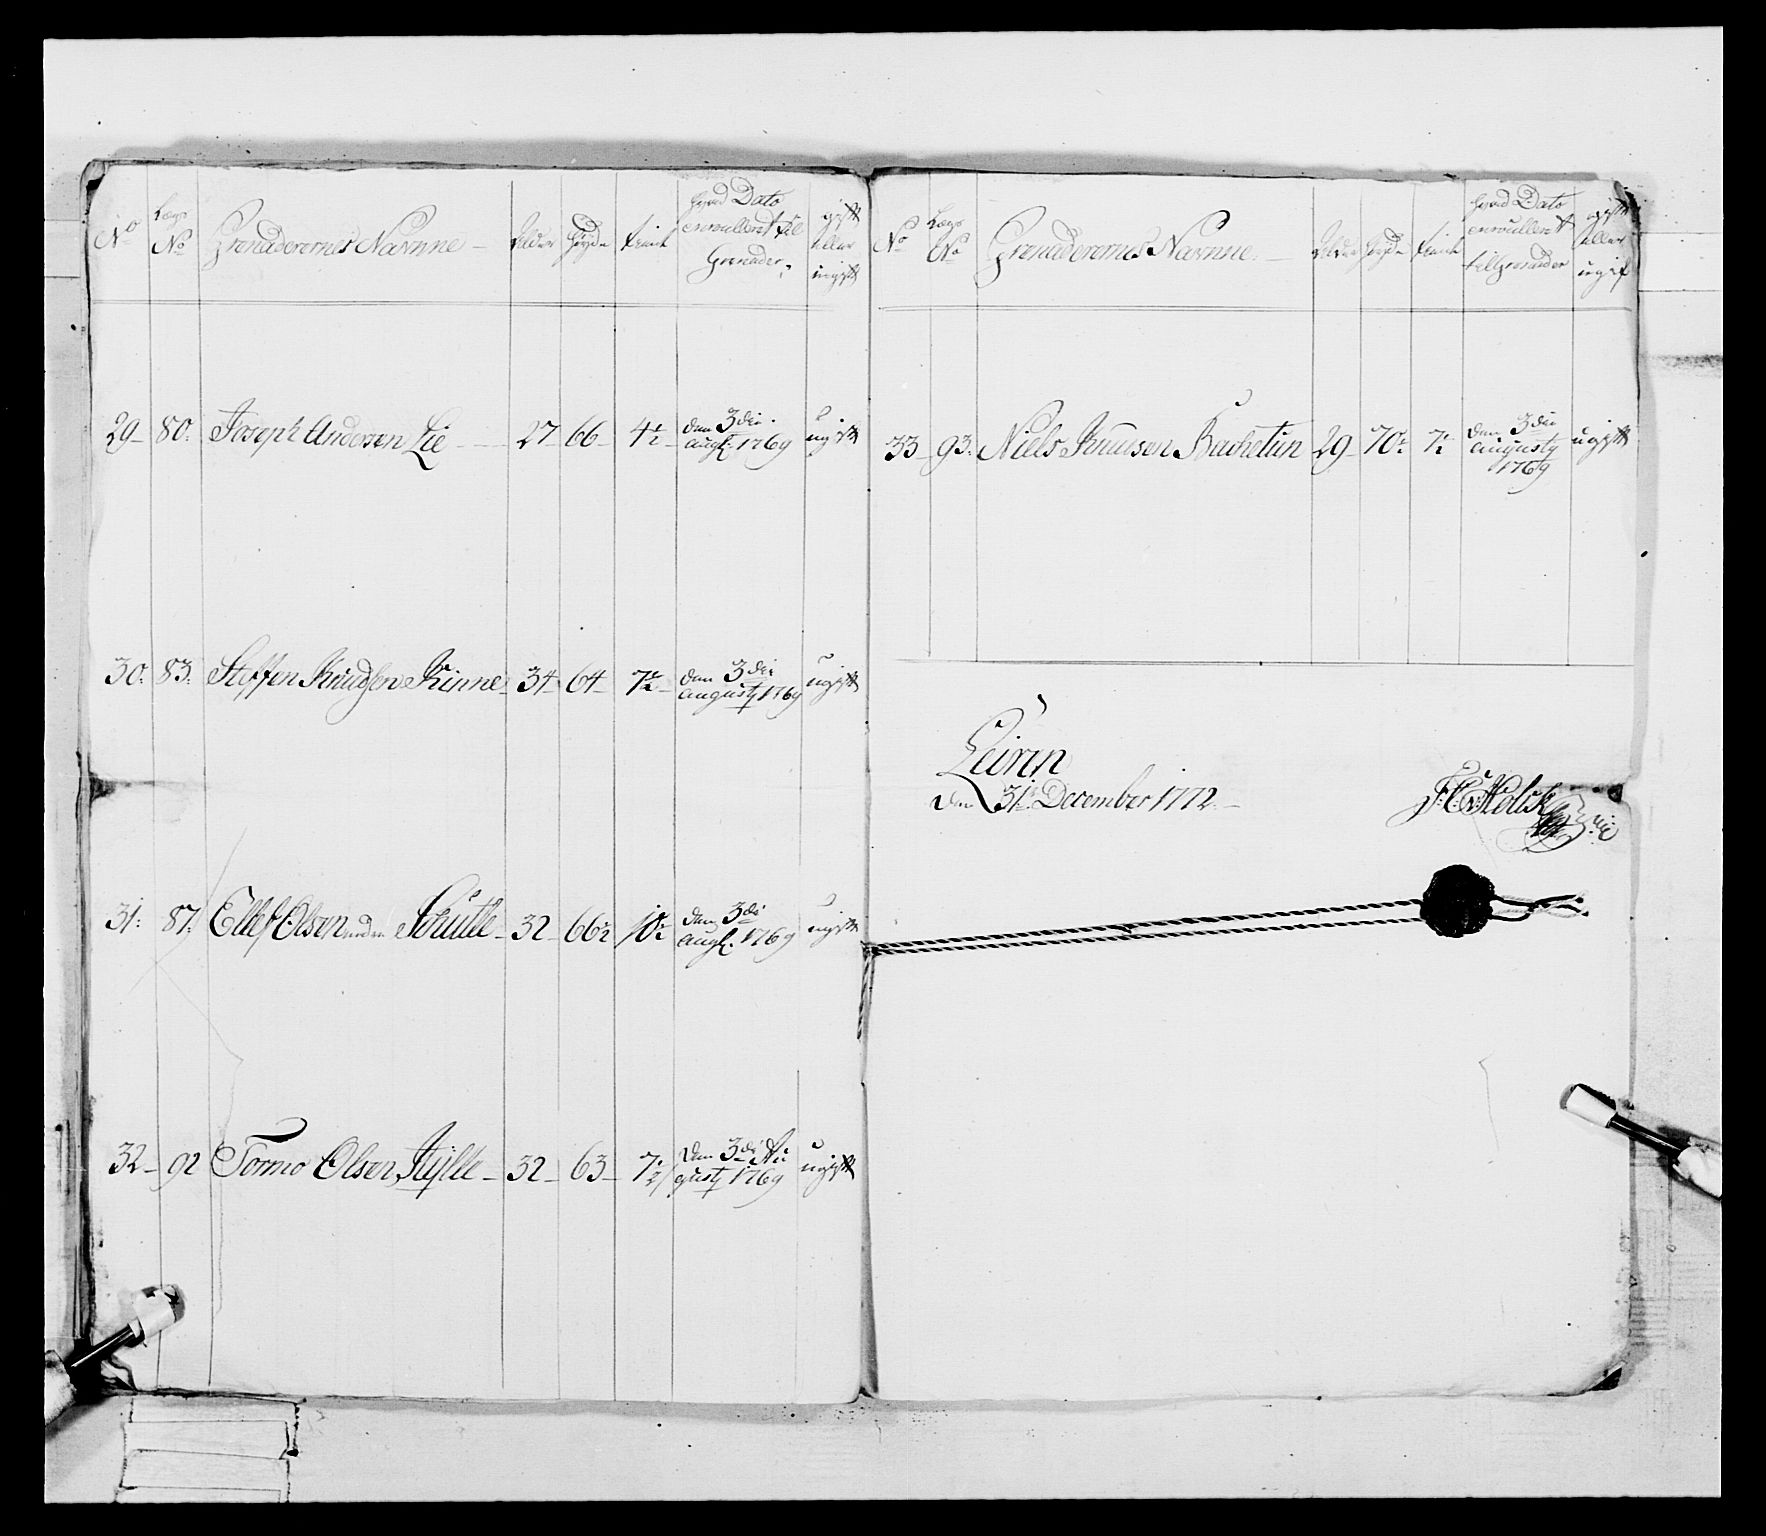 No
Lægs
No
Grenaderernes Navnne
Alder
Høyde
tienst
hvad Dato
enroulleret til
Grenader
gift
eller
ugift
29 80. Joseph Andersen Lie 27 66 4½ den 3die
augt. 1769 ugift
30. 83. Steffen Knudsen Rinne 34 64 7½ den 3die
augusty 1769 ugift
31. 87. Ellef Olsen neden Schutle 32 66½ 10½ den 3die
augt. 1769 ugift
32 92 Tormo Olsen Hylle 32 63 7½ Den 3die Au
gusty 1769 ugift
No
Lægs
No
Grenaderernes Navnne
Alder
Høyde
tienst
hvad Dato
enroulleret
til Grenader
gift
eller
ugift
33 93. Niels Knudsen Bachetun 29 70½ 7½ den 3die
augusty
1769 ugift
Leirin
den 31te December 1772